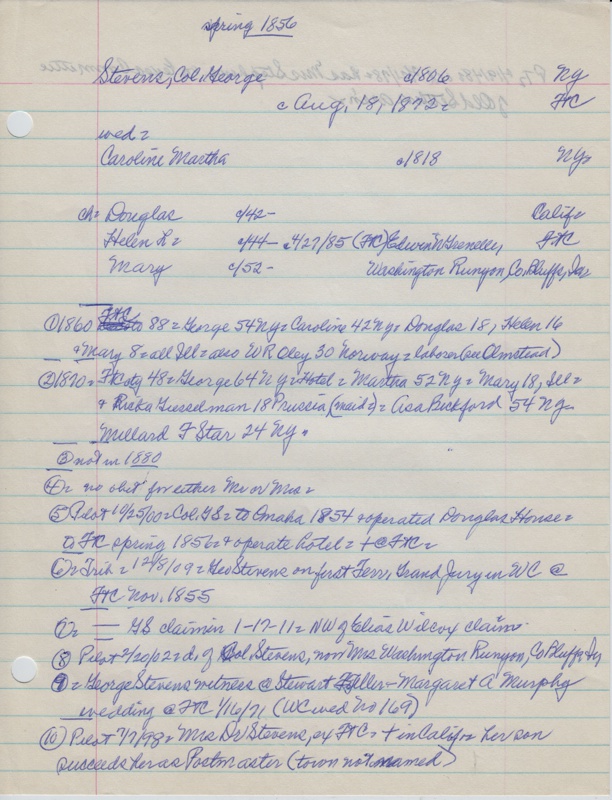 spring 1856
Stevens, Col. George c/1806 Ny
c Aug. 18, 1872= FtC
wed=
Caroline Martha c/1818 Ny=
ch= Douglas c/42- Calif=
Helen L= c/44- 4/27/85 (FtC) Edwin N Grenelle, FtC
Mary c/52- Washington Runyon, Co. Bluffs, Ia,
① 1860 FtC 88= George 54 Ny= Caroline 42 Ny= Douglas 18, Helen 16
+ Mary 8= all Ill= also W R Oley 30 Norway= laborer (see Olmstead)
② 1870= FtC 48= George 64 Ny= Hotel= Martha 52 Ny= Mary 18, Ill=
+ Ricka Giesselman 18 Prussia (maid?)= Asa Bickford 54 Ny=
Millard F Star 24 Ny=
③ not in 1880
④= no obit for either Mr or Mrs=
⑤ Pilot 10/25/00= Col. GS= to Omaha 1854 + operated Douglas House=
to FtC spring 1856= + operate hotel= + @ FtC=
⑥= Trib= 12/8/09= Geo Stevens on first Terr, Grand Jury in WC @
FtC Nov. 1855
⑦= GS claim in 1-17-11= NW of Elias Wilcox claim.
⑧ Pilot 2/20/02= d. of Col Stevens, now Mrs Washington Runyon, Co. Bluffs, Ia,
⑨= George Stevens witness @ Stewart Fuller- Margaret A Murphy
wedding @ FtC 1/16/71 (WC wed No 169)
⑩ Pilot 7/7/98= Mrs Dr Stevens, ex FtC= + in Calif= her son
succeeds her as Postmaster (town not named)